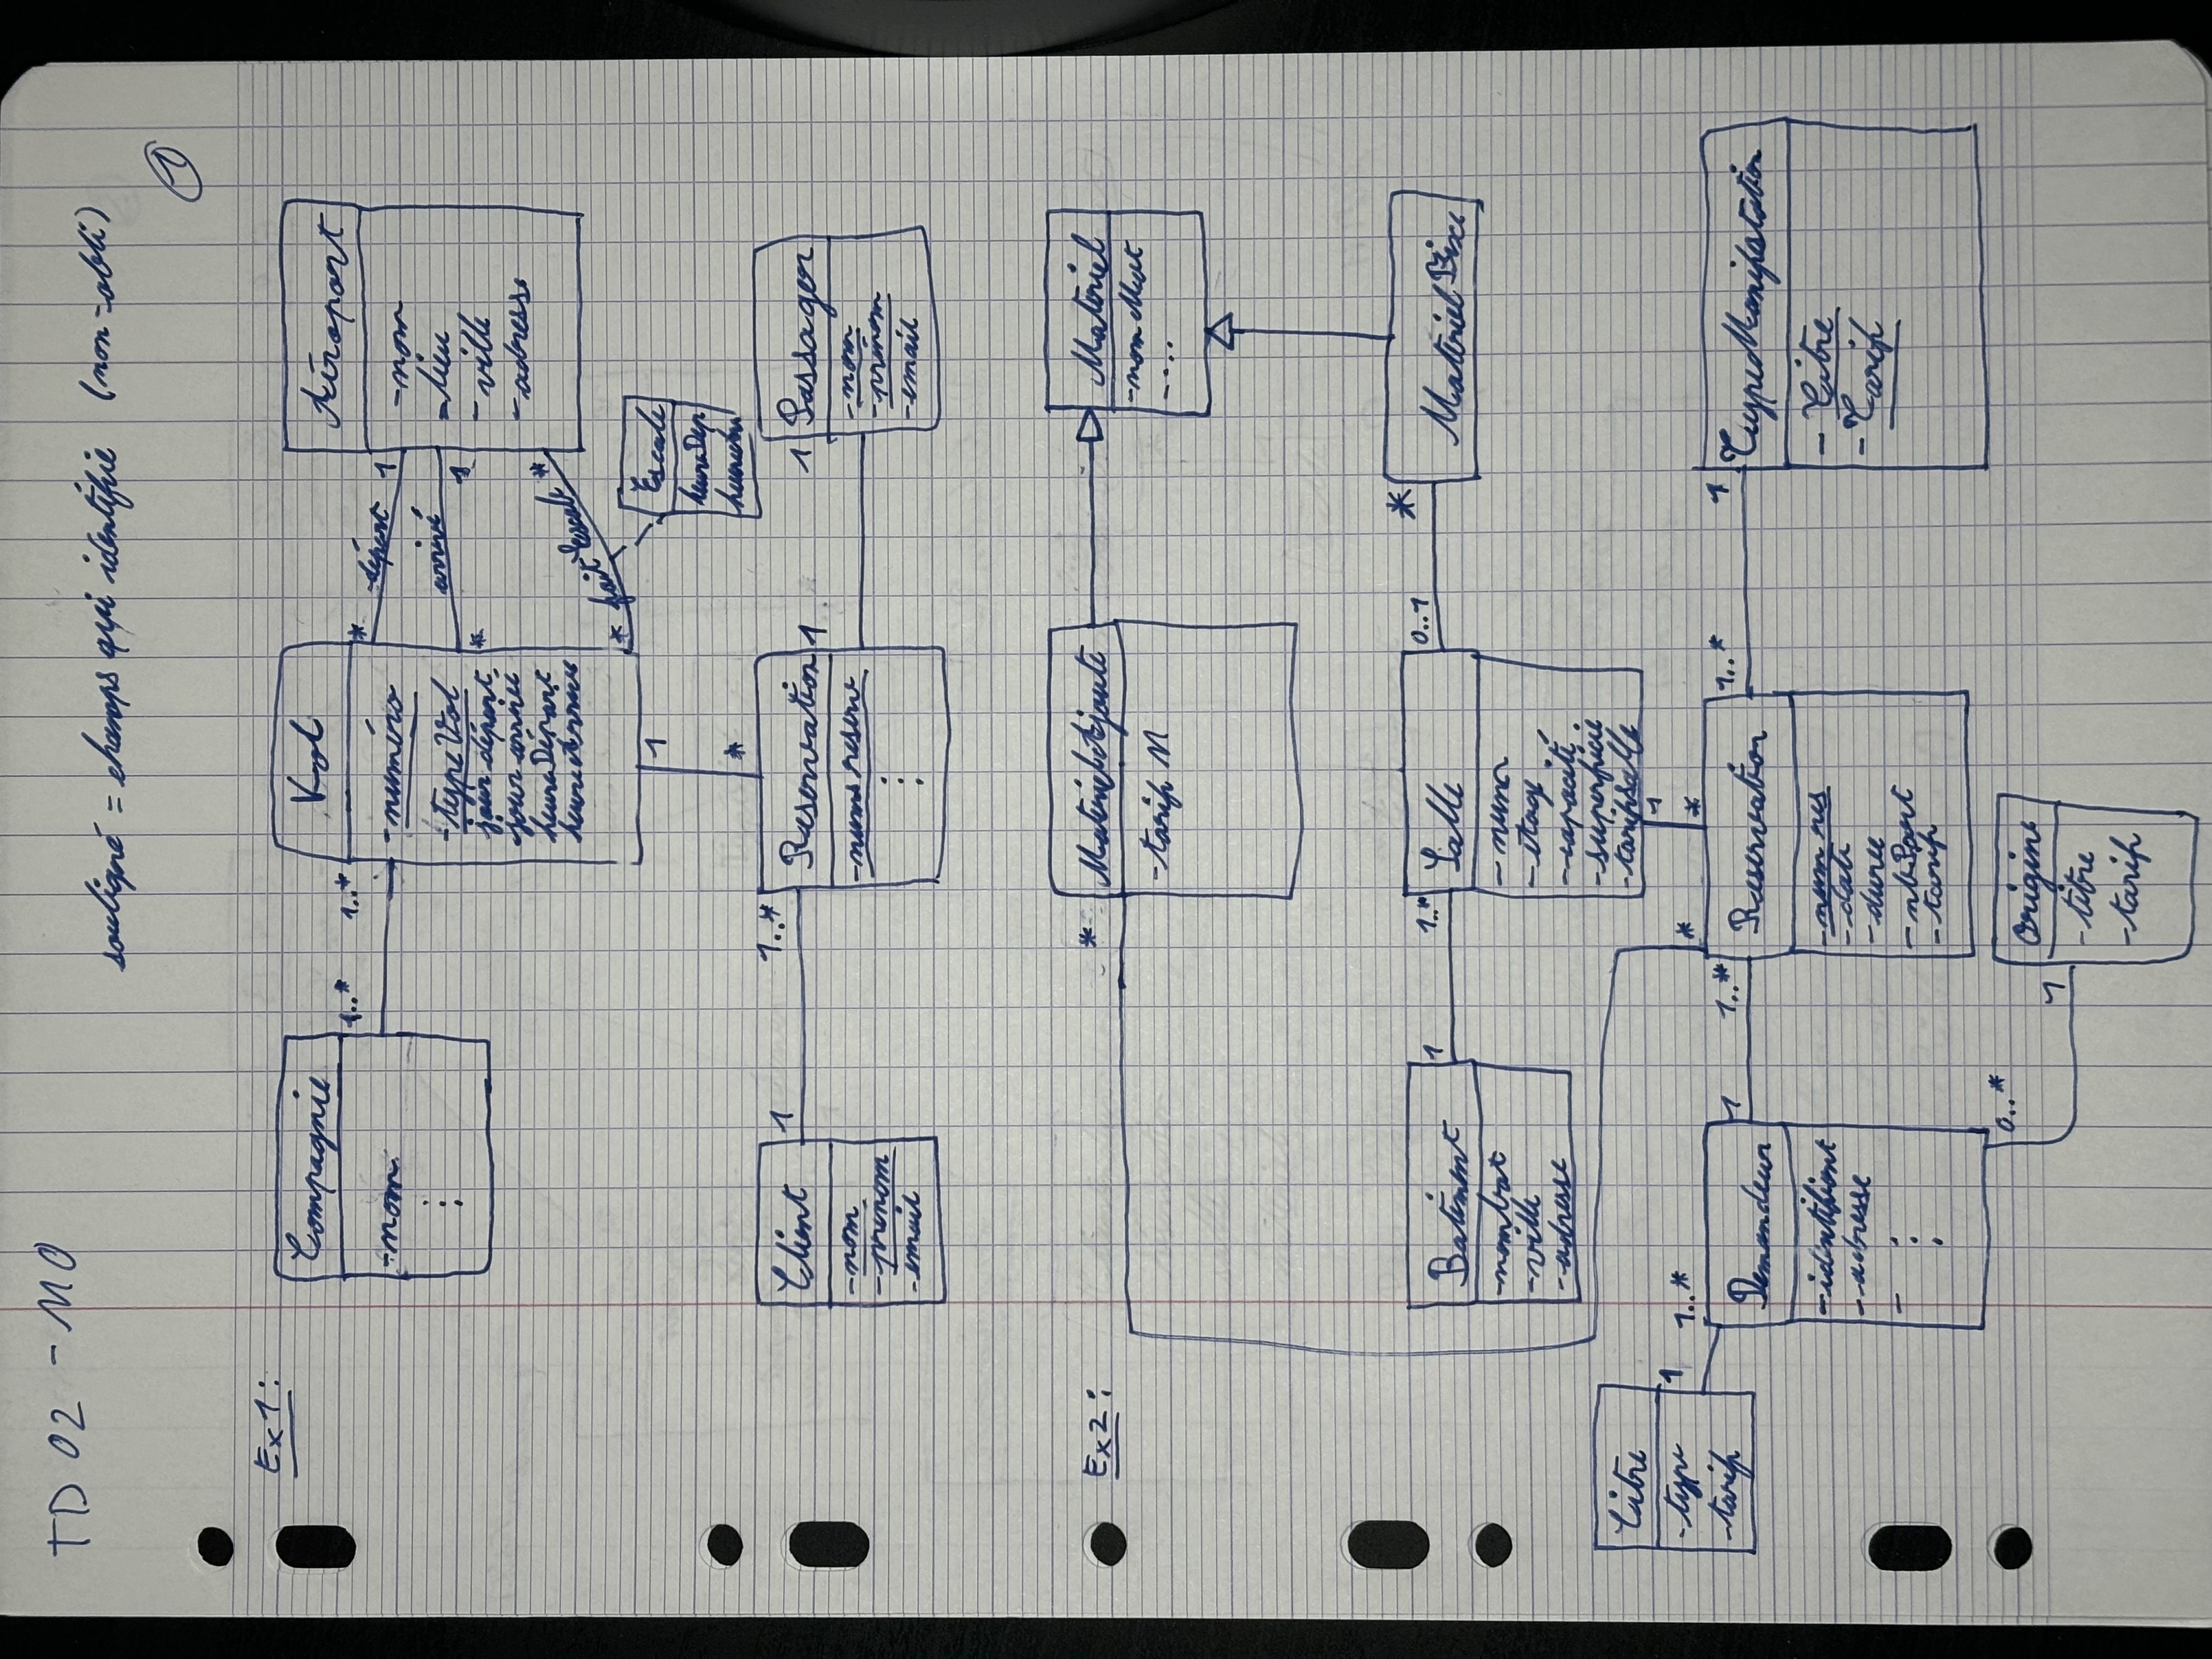 TD 02 - MO
souligné = champs qui identifie (non-obli)
1
Ex1:
Compagnie
-nom
1..*
1..*
Vol
-numéro
-typeVol
jour départ
jour arrivé
heureDépart
heureArrivée
* départ 1
* arrivé 1
* fait Escale *
Aéroport
-nom
-lieu
-ville
-adresse
Escale
heureDep
1
*
Client
-nom
-prénom
-email
1
1..*
Reservation
-nums reserv
1
1
Passager
-nom
-prénom
-email
Ex2:
*
MatérielAjouté
-tarif M
Matériel
-nom Mat
-...
Batiment
-nombat
-ville
-adresse
1
1..*
Salle
- num
- étage
-capacité
-superficie
-tarifSalle
0..1
*
MatérielFixe
Titre
-type
-tarif
1
1..*
1
*
*
Demandeur
-identifiant
-adresse
-
1
1..*
Reservation
-num res
-date
-duree
-nbPart
-tarif
1..*
1
TypeManifestation
- Titre
- Tarif
0..*
1
Origine
-titre
-tarif